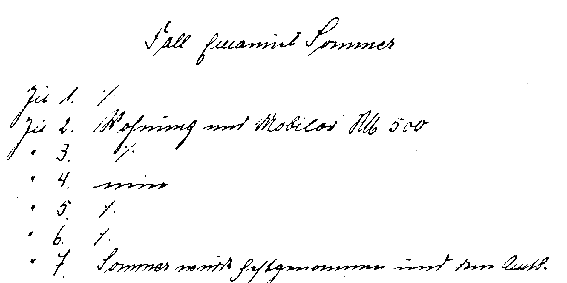 Fall Emanuel Sommer
Zif 1. ./.
Zif 2. Wohnung und Mobilar RM 500
" 3. ./.
" 4. nein
" 5. ./.
" 6. ./.
" 7. Sommer wurde festgenommen und dem